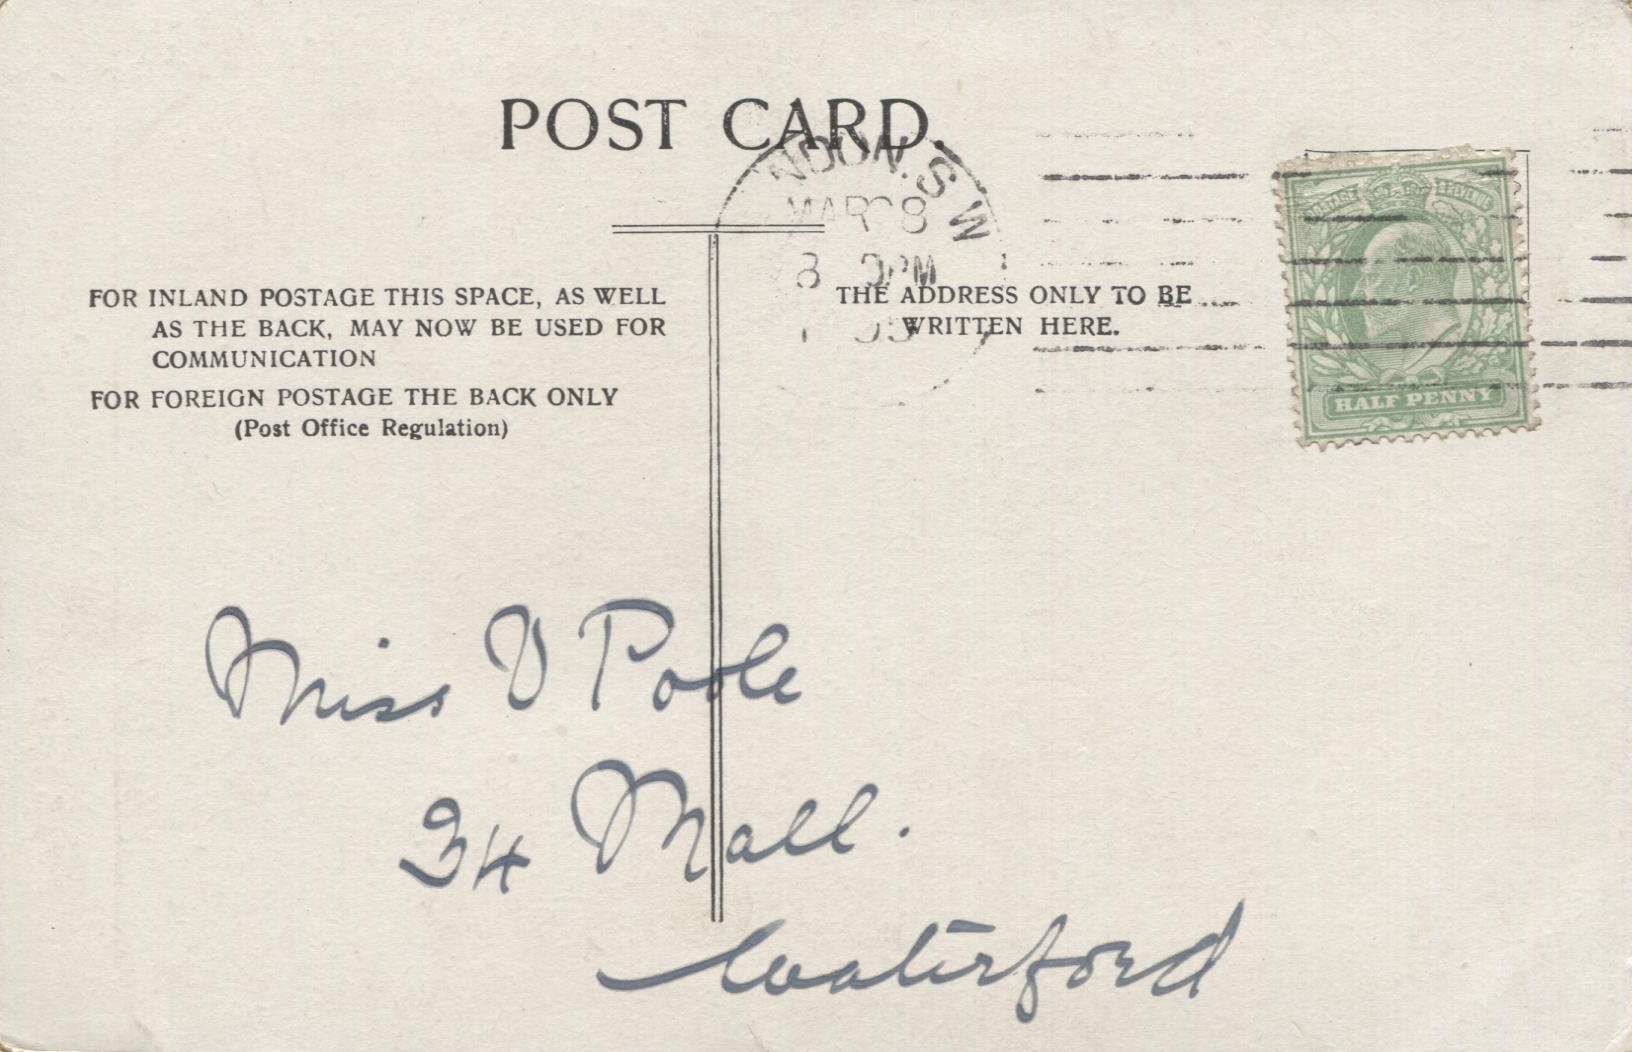 POST CARD.
NDON. S.W
MAR 8
8 PM
FOR INLAND POSTAGE THIS SPACE, AS WELL
AS THE BACK, MAY NOW BE USED FOR
COMMUNICATION
FOR FOREIGN POSTAGE THE BACK ONLY
(Post Office Regulation)
THE ADDRESS ONLY TO BE
WRITTEN HERE.
POSTAGE REVENUE
HALF PENNY
Miss V Poole
34 Mall.
Waterford